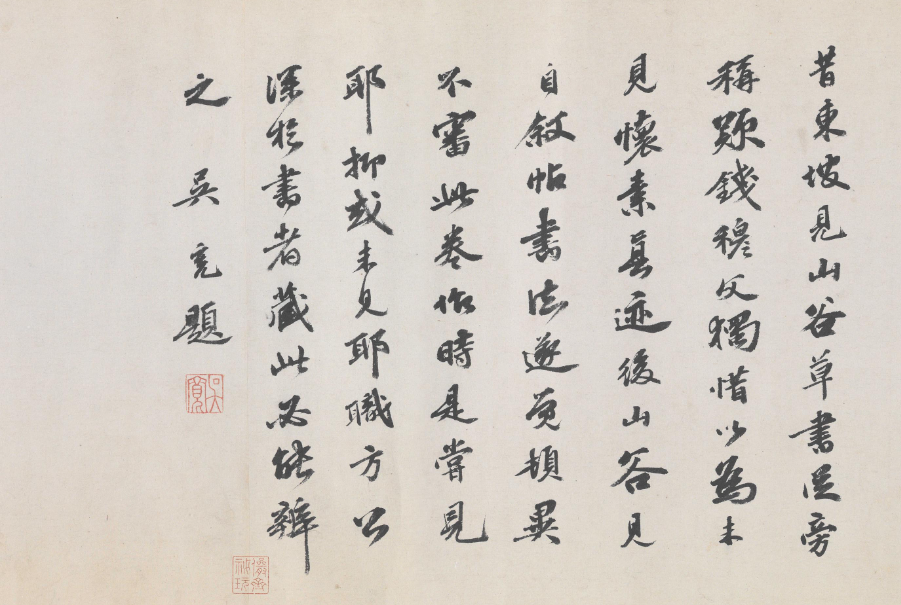 昔東坡見山谷草書從旁
稱歎錢穆父獨惜以為未
見懷素真迹後山谷見
自敘帖書法遂覺頓異
不審此卷作時是嘗見
耶抑或未見耶職方公
深於書者藏此必能辨
之 吳寬題
吳寬